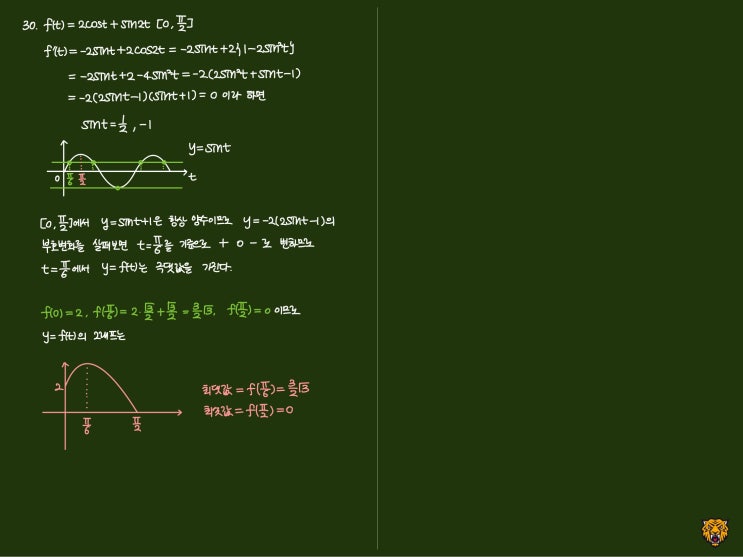 30. f(t) = 2cost + sin2t [0, π/2]
f'(t) = -2sint + 2cos2t = -2sint + 2{1-2sin²t}
= -2sint + 2 - 4sin²t = -2(2sin²t + sint - 1)
= -2(2sint-1)(sint+1) = 0 이라 하면
sint = 1/2, -1
y = sint
0 π/6 π/2 t
[0, π/2]에서 y = sint+1은 항상 양수이므로 y = -2(2sint-1)의
부호변화를 살펴보면 t = π/6를 기준으로 + 0 - 로 변하므로
t = π/6에서 y = f(t)는 극댓값을 가진다.
f(0) = 2, f(π/6) = 2·√3/2 + √3/2 = 3/2√3, f(π/2) = 0 이므로
y = f(t)의 그래프는
2
π/6 π/2
최댓값 = f(π/6) = 3/2√3
최솟값 = f(π/2) = 0